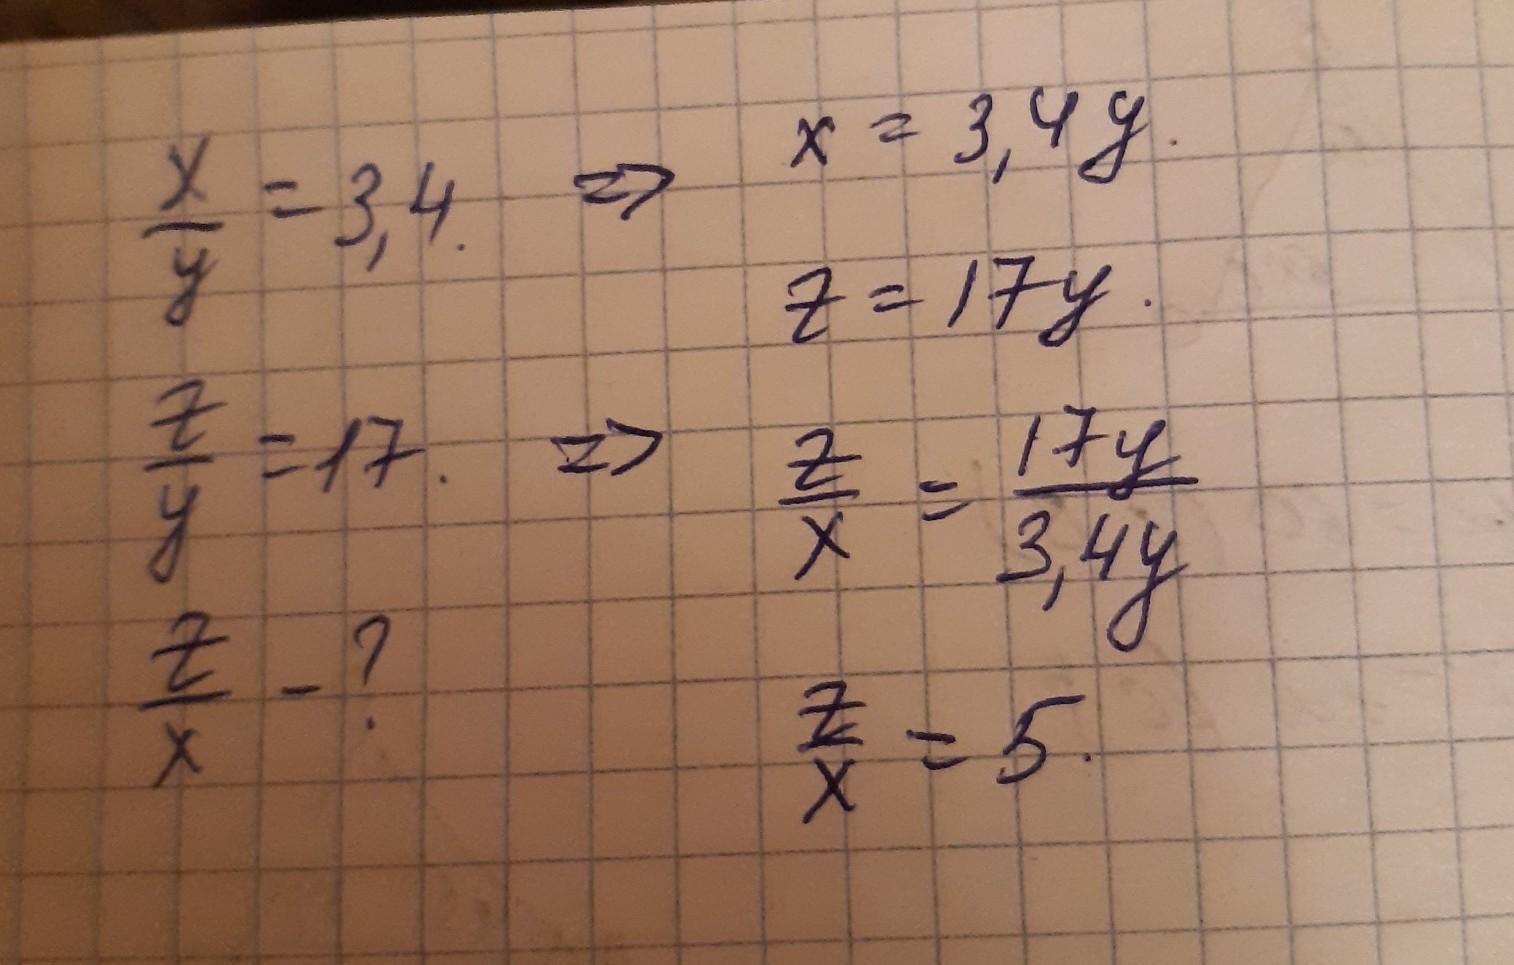 x/y = 3,4. => x = 3,4y.
z = 17y.
z/y = 17. => z/x = 17y/3,4y
z/x - ?
z/x = 5.